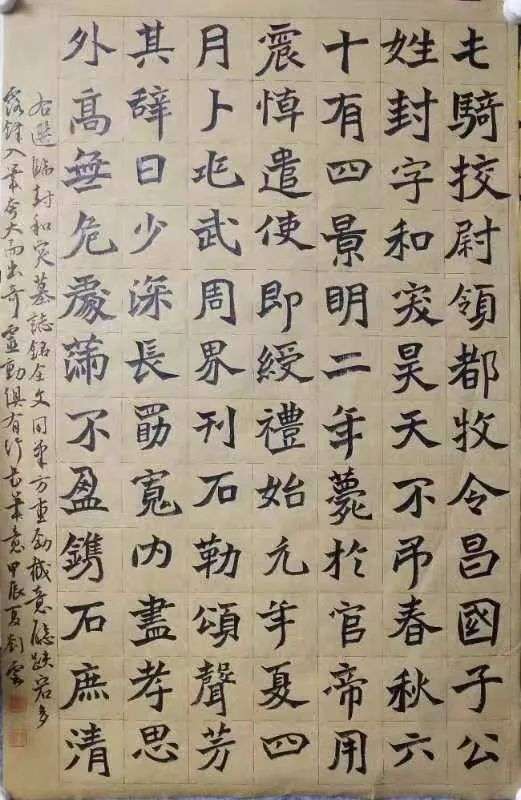 屯騎挍尉領都牧令昌國子公
姓封字和突昊天不弔春秋六
十有四景明二年薨於官帝用
震悼遣使即綬禮始元年夏四
月卜兆武周界刊石勒頌聲芳
其辭曰少深長勖寬内盡孝思
外高無危處滿不盈鐫石庶清
右選臨封和突墓誌銘全文用筆方重意態跌宕多
露鋒入筆夸大而出奇靈動俱有行書筆意甲辰夏劉雲